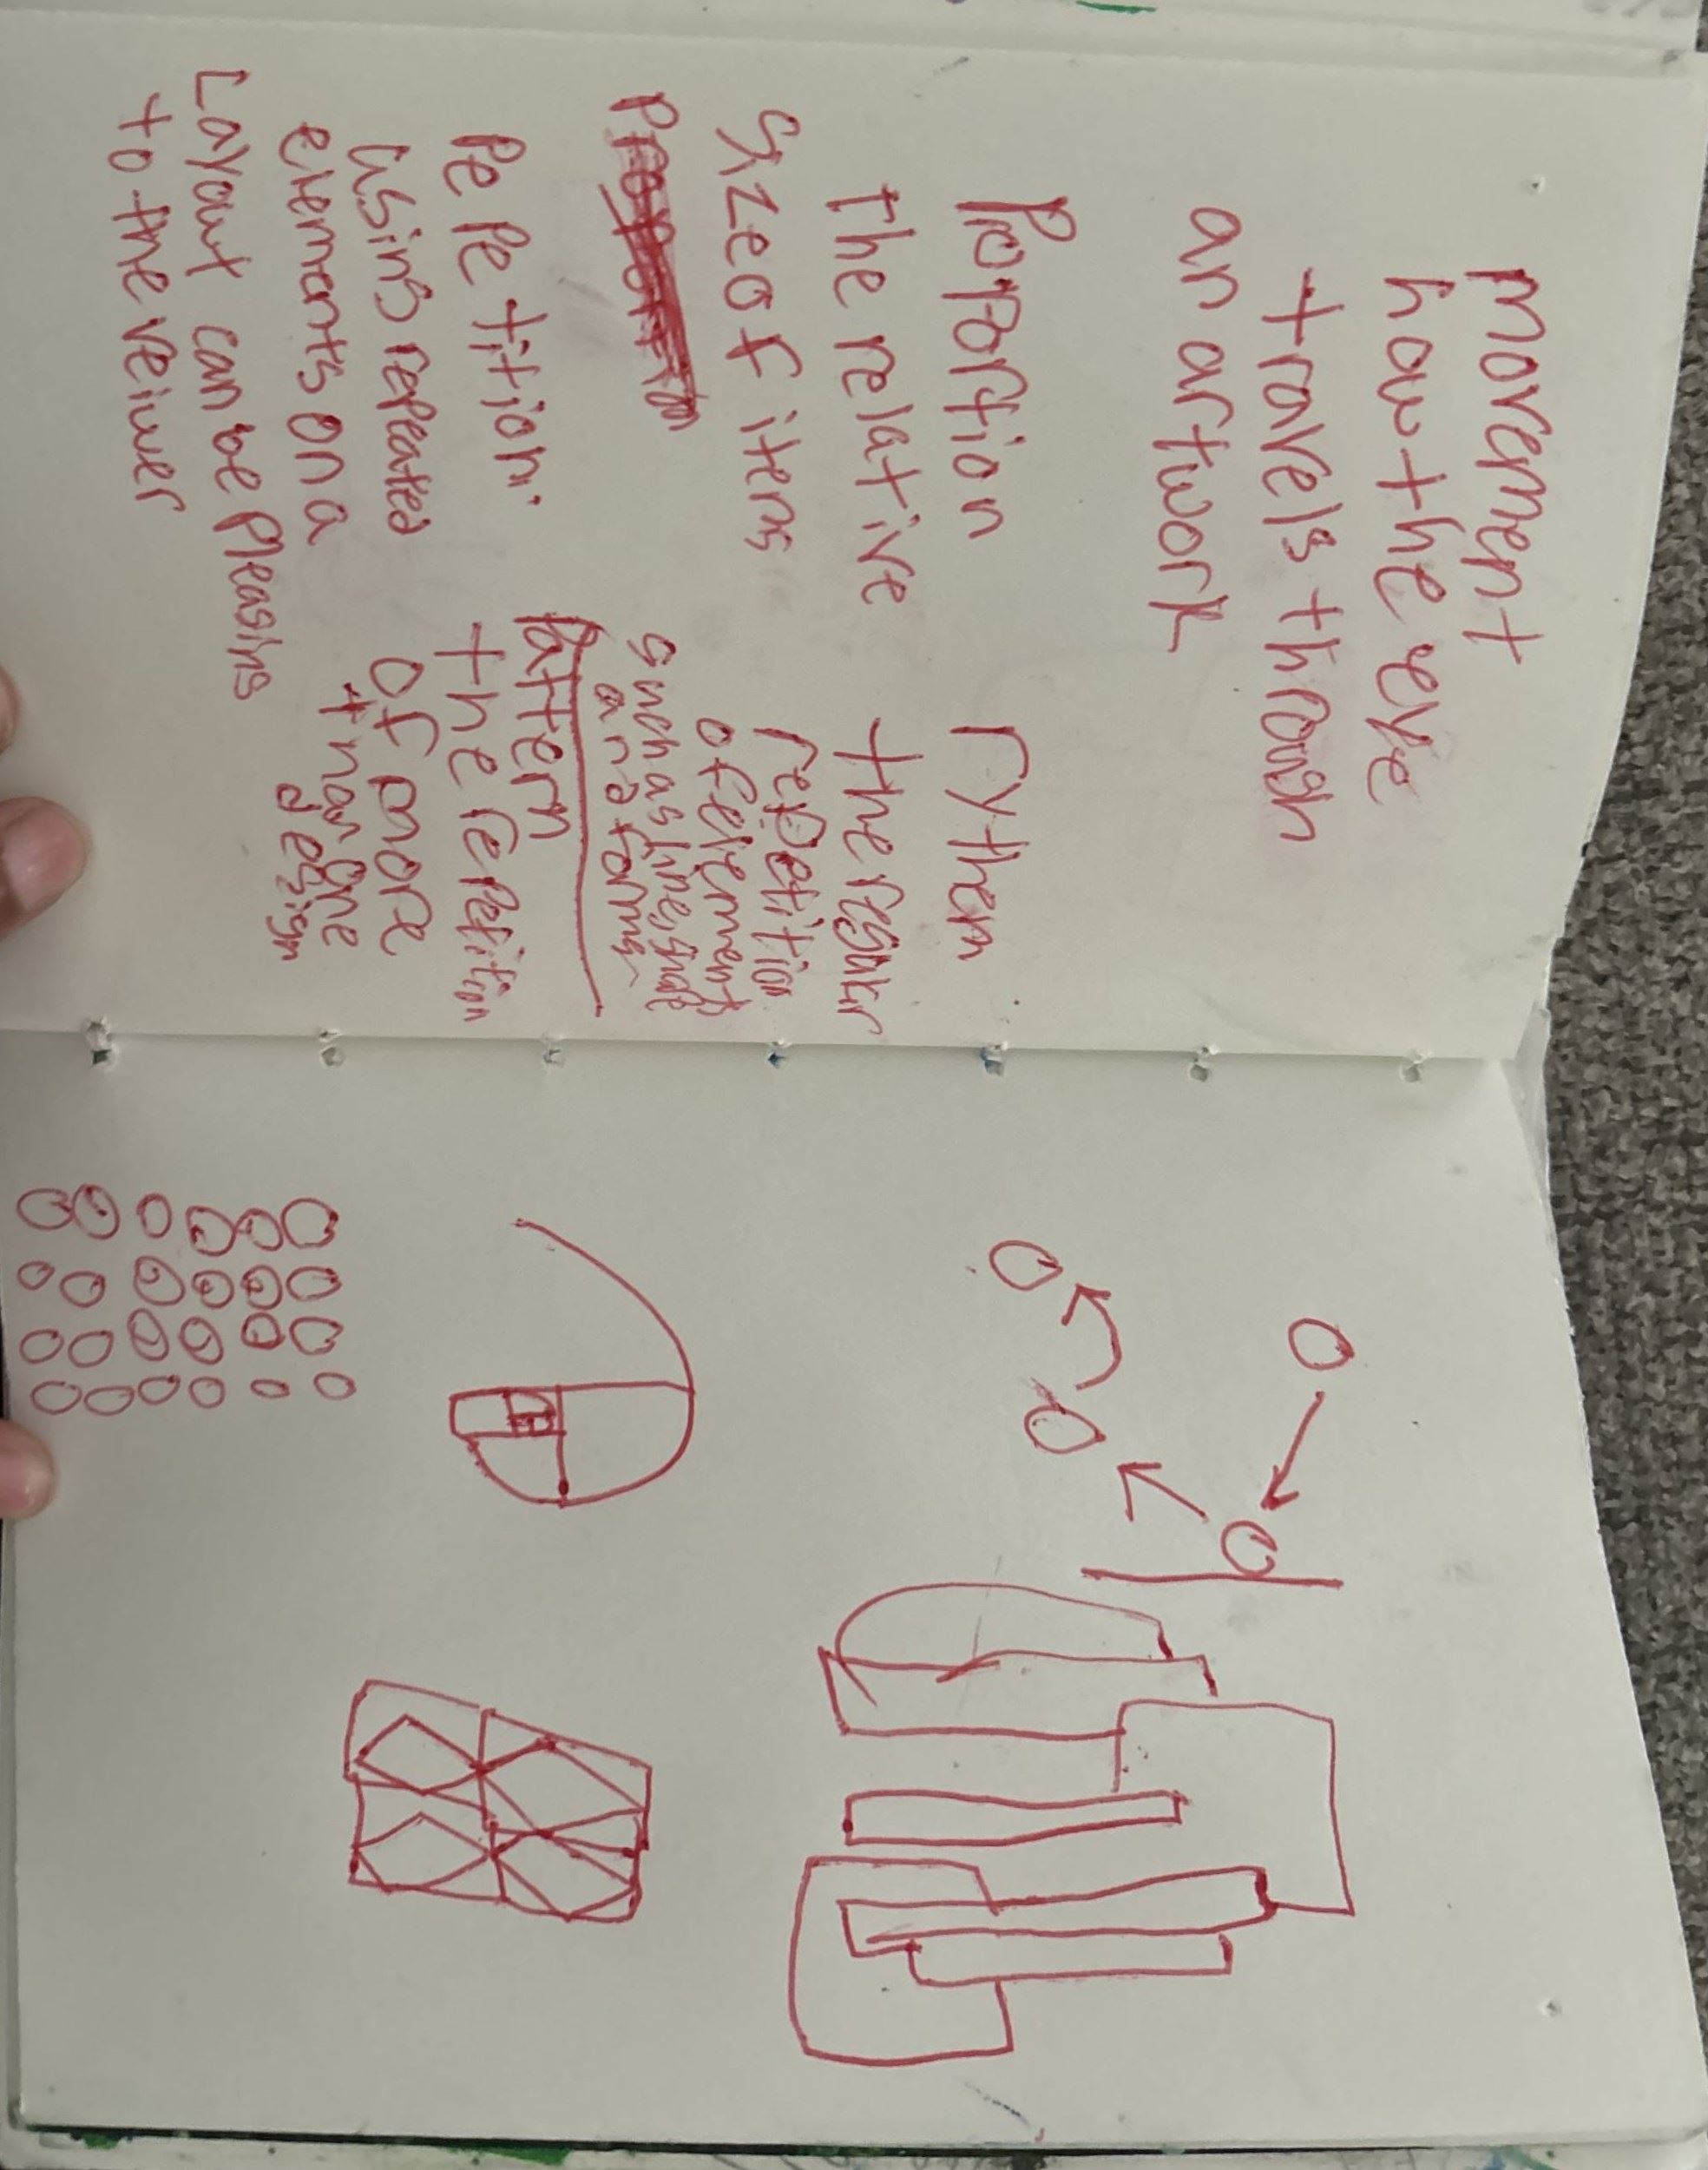 movement
how the eye
travels throagh
an artwork
Proportion
The relative
Size of items
rythem
the regular
repetition
of elements
such as line, shape
and forms
Pepetition.
using repeated
elements on a
Layout can be pleasing
to the veiwer
Pattern
the repetition
of more
than one
design